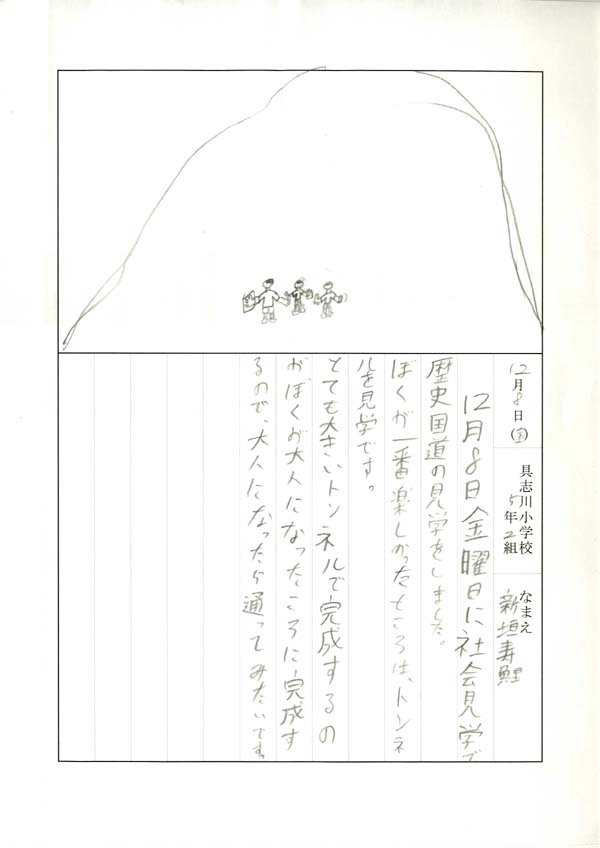 12月8日(金) 具志川小学校 5年2組 なまえ 新垣寿鯉
12月8日金曜日に社会見学で
歴史国道の見学をしました。
ぼくが一番楽しかったところは、トンネ
ルを見学です。
とても大きいトンネルで完成するの
がぼくが大人になったころに完成す
るので、大人になったら通ってみたいです。